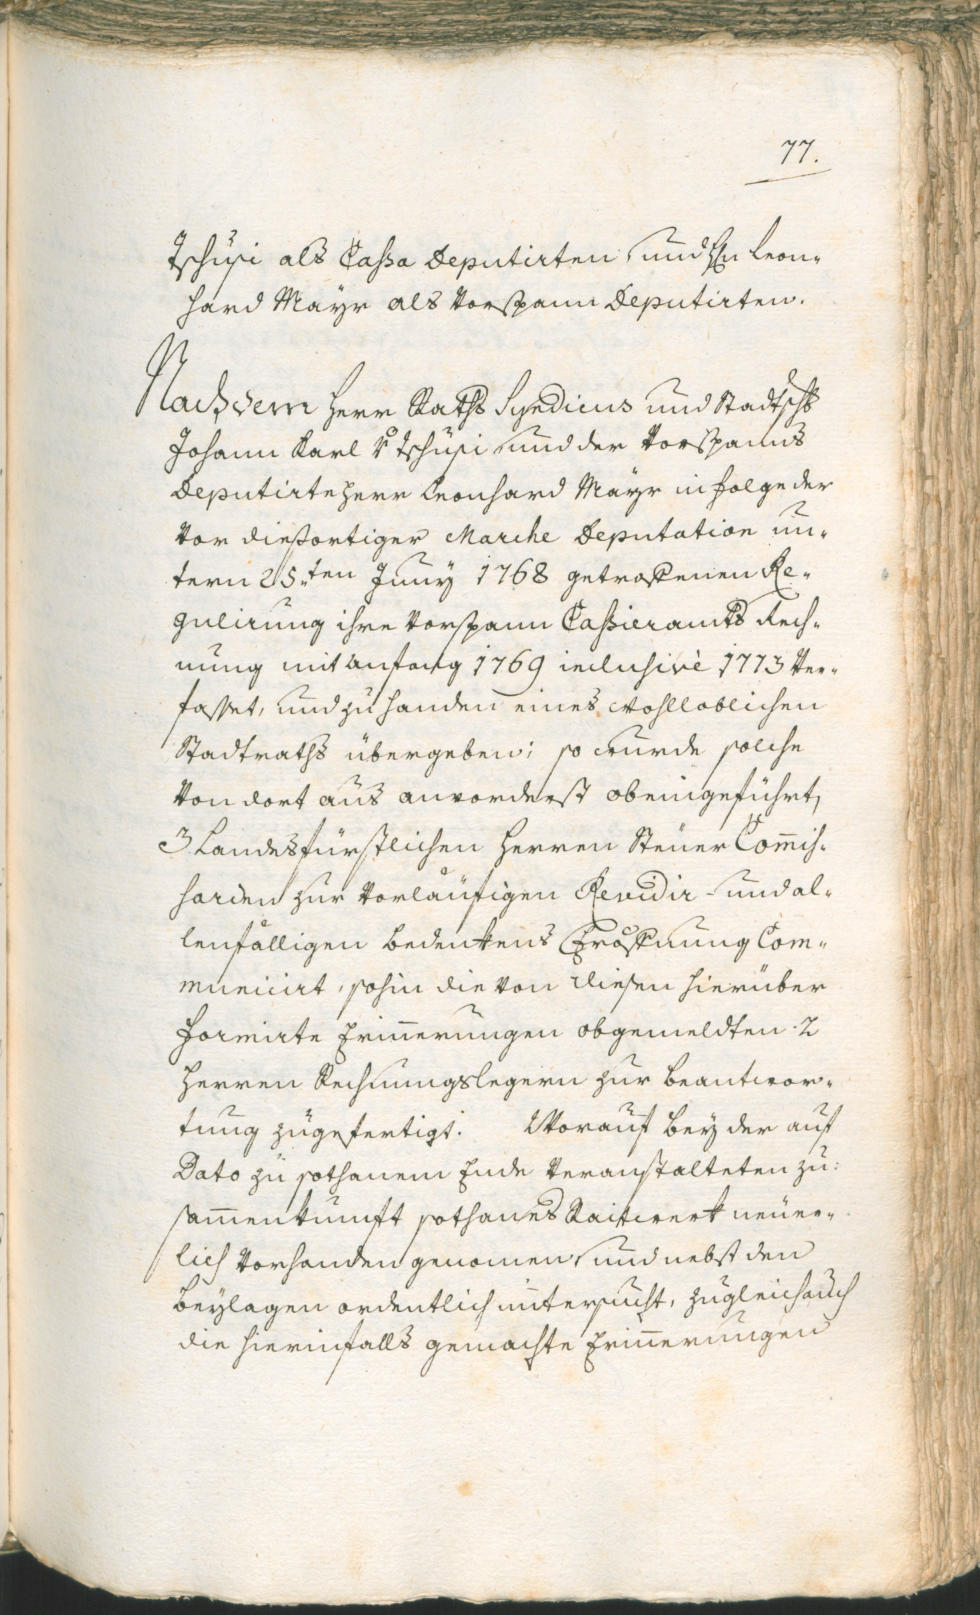 77.
Tschüsi als Cassa Deputirten und Hn Leon-
hard Mayr als Vorspann Deputirten.
Nachdem Herr Raths Syndicus und Stadtschr
Johann Karl v Tschüsi und der Vorspanns
Deputirte Herr Leonhard Mayr in folge der
von diesortiger Marche Deputation un-
term 25.ten Juny 1768 getroffenen Re-
gulirung ihre Vorspann Cassieramts Rech-
nung mit anfang 1769 inclusivè 1773 ver-
fasset, und zu handen eines wohlloblichen
Stadtraths übergeben; so wurde solche
von dort aus anvorderst obeingeführt,
3 Landesfürstlichen Herren Steuer Com̅is-
sarien zur vorläufigen Revidir- und al-
lenfälligen bedenkens Eröffnung Com-
municirt, sohin die von diesen hierüber
formirte Erin̅erungen obgemeldten 2
Herren Rechnungslegern zur beantwor-
tung zugefertigt. Worauf bey der auf
Dato zu sothanem Ende veranstalteten zu-
sam̅enkunft sothanes Raitwerk neuer-
lich vorhanden genomen, und nebst den
beylagen ordentlich untersucht, zugleich auch
die hierinfalls gemachte Erin̅erungen